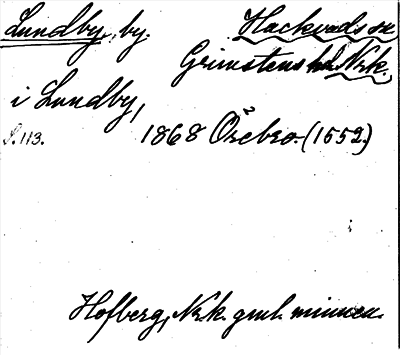 Lundby, by. Hackvads sn
Grimstens hd Nrk.
i Lundby,
S. 113. 1868 Örebro. (1552)
Hofberg, Nrk. gml. minnen.